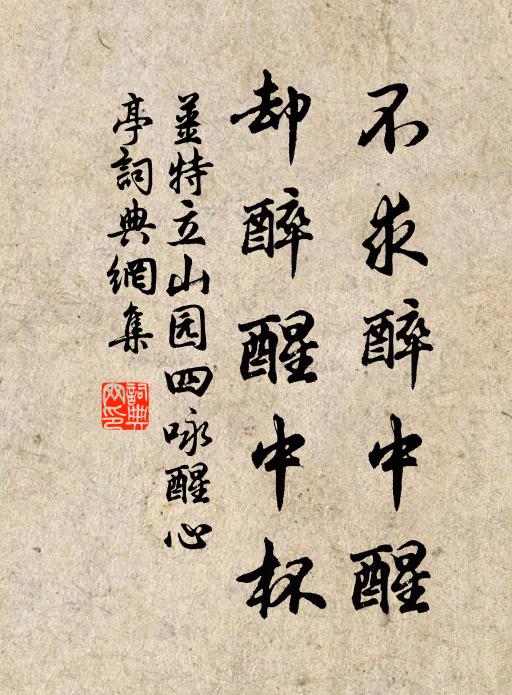 不求醉中醒
却醉醒中杯
姜特立山园四咏醒心
亭詞典網集
詞典
网印